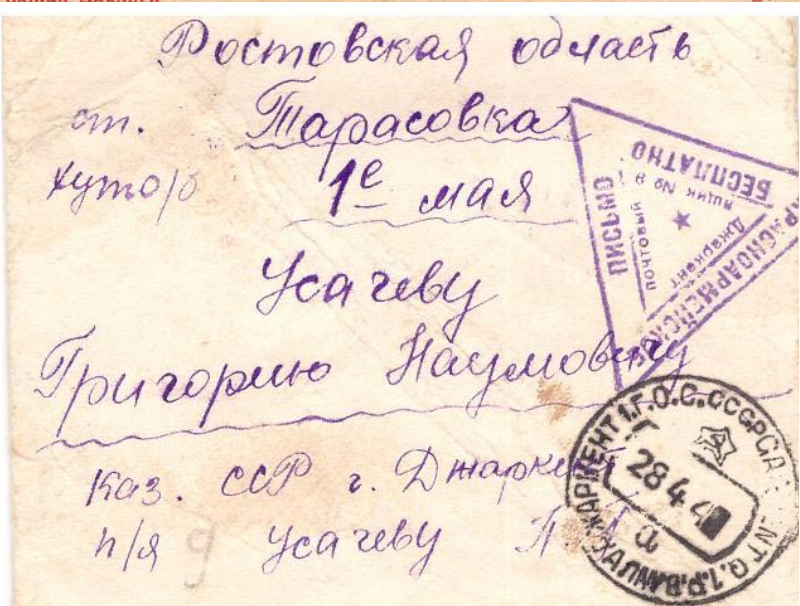 Ростовская область
ст. Тарасовка
хутор 1е мая
Усачеву
Григорию Наумовичу
Каз. ССР г. Джаркент
п/я 9 Усачеву П
КРАСНОАРМЕЙСКОЕ
ПИСЬМО
БЕСПЛАТНО
Джаркент
почтовый
ящик № 9
28 4 4